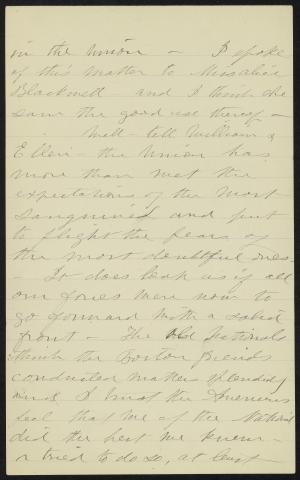 in the Union — I spoke
of this matter to Miss Alice
Blackwell — and I think she
saw the good use thereof —
Well — tell William &
Ellen — the Union has
more than met the
expectations of the most
sanguine and put
to flight the fears of
the most doubtful ones —
— It does look as if all
our forces were now to
go forward with a solid
front — The old Nationals
think the Boston friends
conducted matters splendidly
and I trust the Americans
feel that we of the National
did the best we knew —
or tried to do so, at least